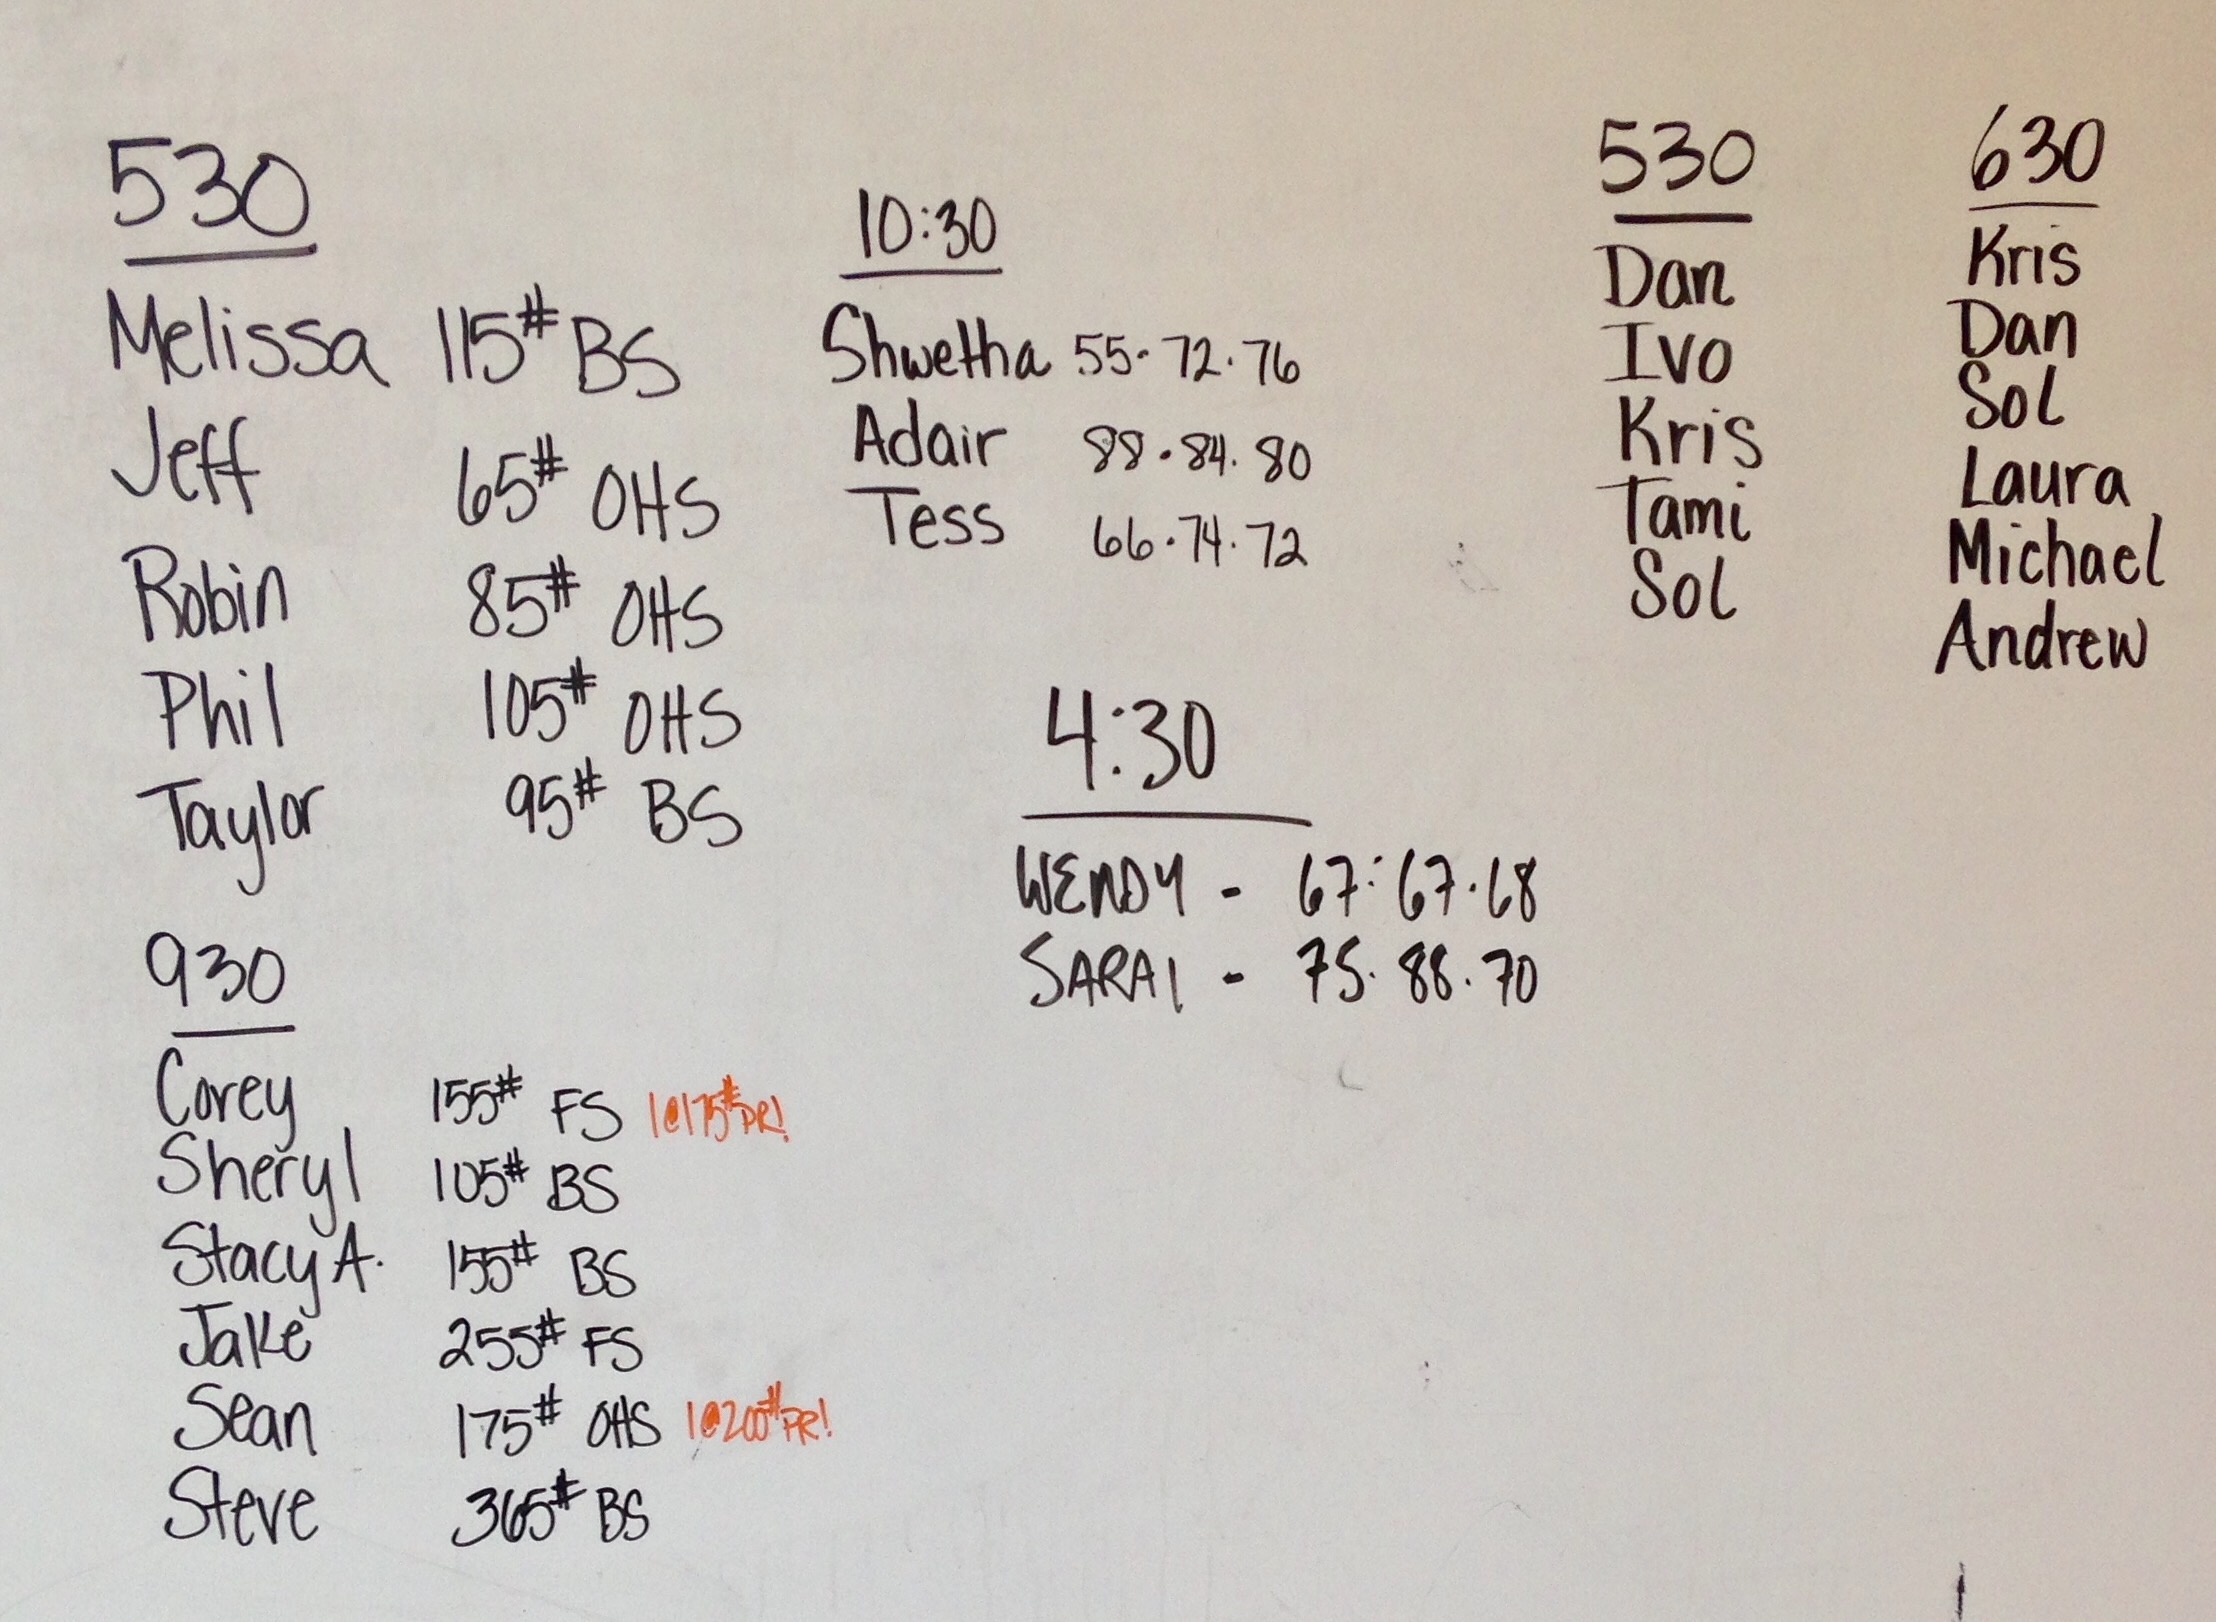 530
Melissa 115# BS
Jeff 65# OHS
Robin 85# OHS
Phil 105# OHS
Taylor 95# BS
930
Corey 155# FS 1@175# PR!
Sheryl 105# BS
Stacy A. 155# BS
Jake 255# FS
Sean 175# OHS 1@200# PR!
Steve 365# BS
10:30
Shwetha 55·72·76
Adair 88·84·80
Tess 66·74·72
4:30
WENDY - 67·67·68
SARAI - 75·88·70
530
Dan
Ivo
Kris
Tami
Sol
630
Kris
Dan
Sol
Laura
Michael
Andrew